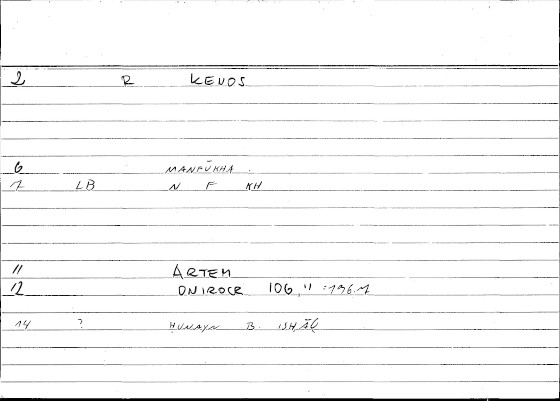 2 R KENOS
6 MANFŪKHA.
7 LB N F KH
11 ARTEM
12 ONIROCR 106, 11 = 196.7
14 ? ḤUNAYN B. ISḤĀQ